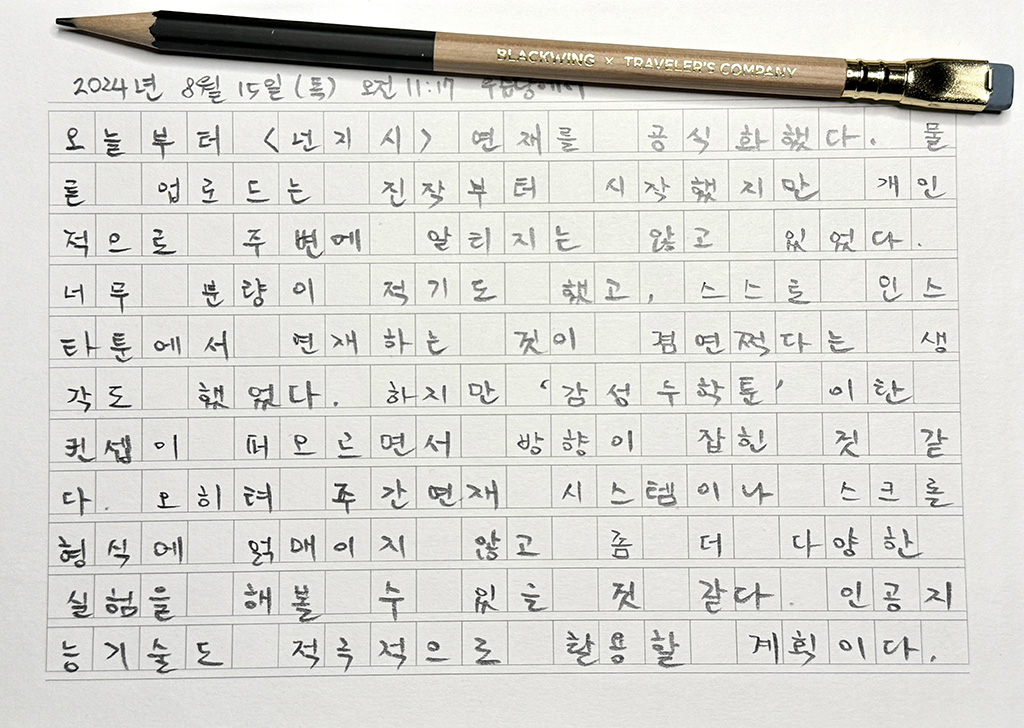 BLACKWING × TRAVELER'S COMPANY
2024년 8월 15일 (목) 오전 11:17
오늘부터 <넌지시> 연재를 공식화했다. 물
론 업로드는 진작부터 시작했지만 개인
적으로 주변에 알리지는 않고 있었다.
너무 분량이 적기도 했고, 스스로 인스
타툰에서 연재하는 것이 겸연쩍다는 생
각도 했었다. 하지만 '감성수학툰' 이란
컨셉이 떠오르면서 방향이 잡힌 것 같
다. 오히려 주간연재 시스템이나 스크롤
형식에 얽매이지 않고 좀 더 다양한
실험을 해볼 수 있을 것 같다. 인공지
능기술도 적극적으로 활용할 계획이다.